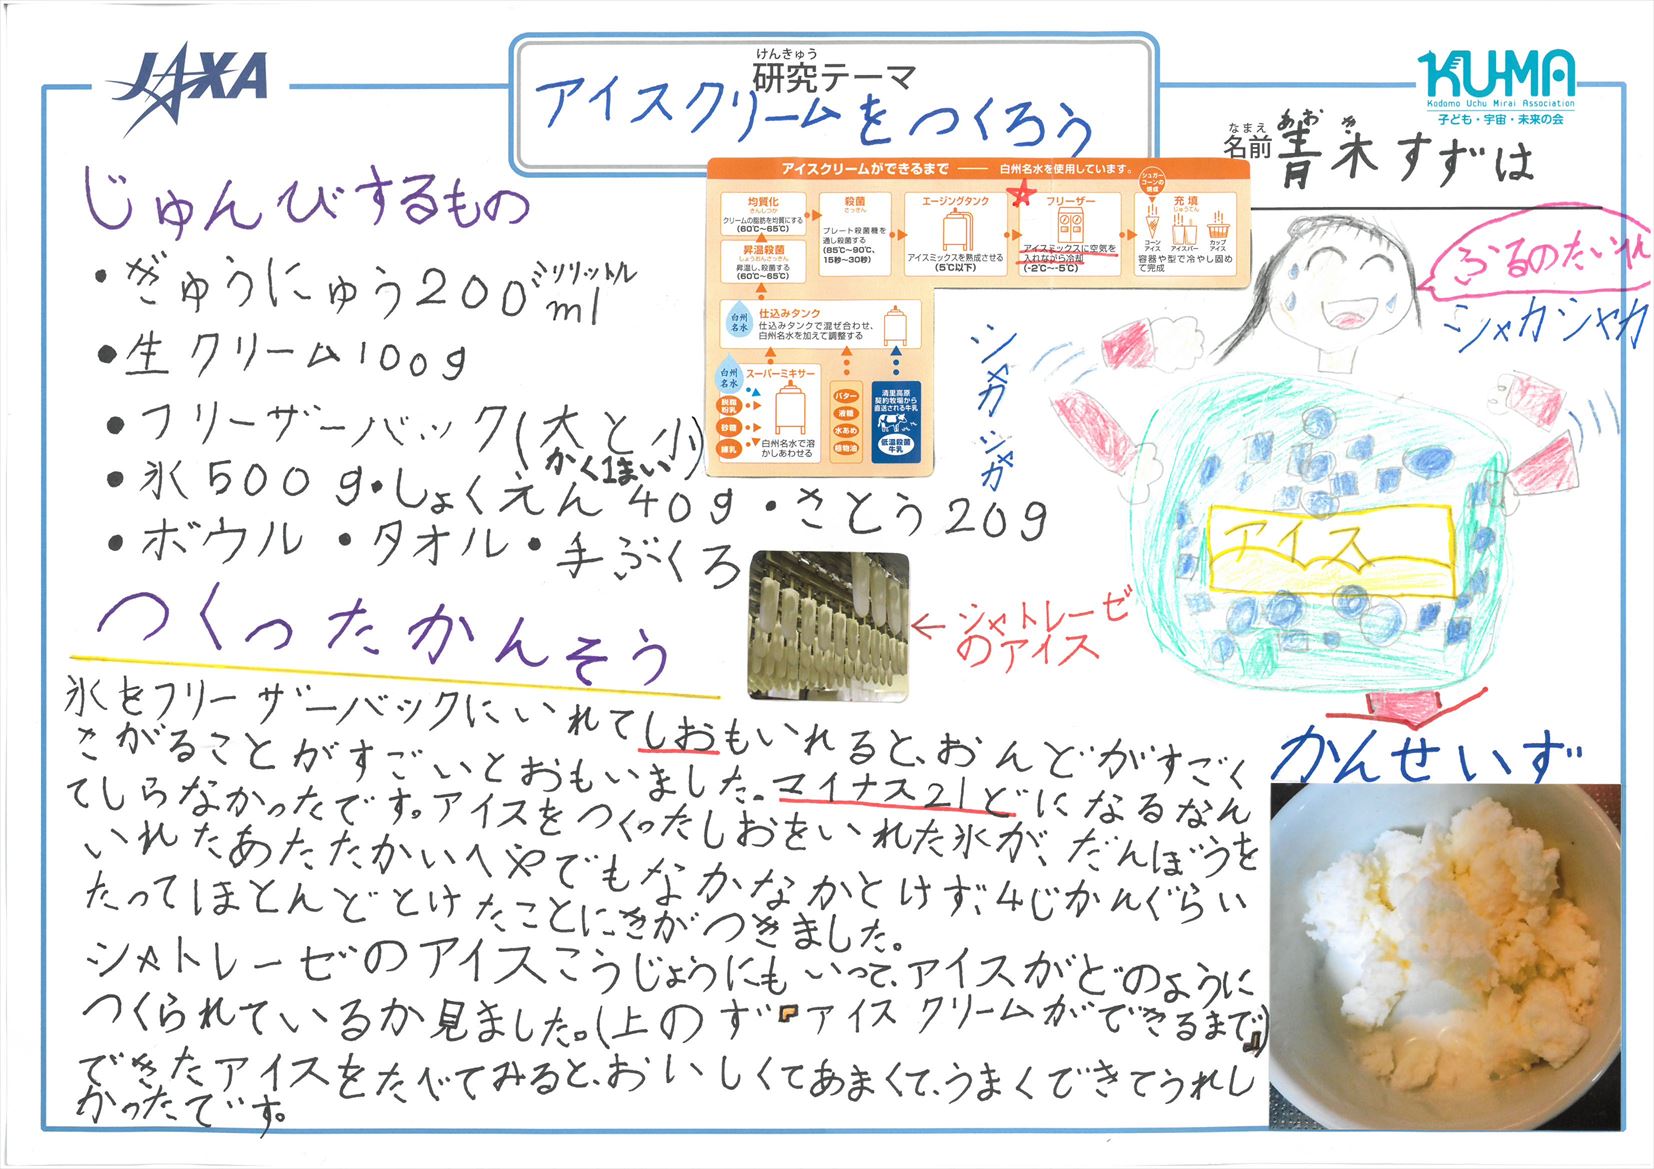 JAXA
けんきゅう
研究テーマ
アイスクリームをつくろう
KU-MA
Kodomo Uchu Mirai Association
子ども・宇宙・未来の会
なまえ あおき
名前 青木すずは
じゅんびするもの
・ぎゅうにゅう200ml
ミリリットル
・生クリーム100g
・フリーザーバック(大と小)
かく1まい
・氷500g・しょくえん40g・さとう20g
・ボウル・タオル・手ぶくろ
アイスクリームができるまで 白州名水を使用しています。
均質化
きんしつか
クリームの脂肪を均質にする
(60℃〜65℃)
昇温殺菌
しょうおんさっきん
昇温し、殺菌する
(60℃〜65℃)
殺菌
さっきん
プレート殺菌機を
通し殺菌する
(85℃〜90℃、
15秒〜30秒)
エージングタンク
アイスミックスを熟成させる
(5℃以下)
フリーザー
アイスミックスに空気を
入れながら冷却
(-2℃〜-5℃)
シュガー
コーンの
焼成
充填
じゅうてん
コーン
アイス
アイスバー
カップ
アイス
容器や型で冷やし固め
て完成
白州
名水
仕込みタンク
仕込みタンクで混ぜ合わせ、
白州名水を加えて調整する
白州
名水
スーパーミキサー
脱脂
粉乳
砂糖
練乳
白州名水で溶
かしあわせる
バター
液糖
水あめ
植物油
清里高原
契約牧場から
直送される牛乳
低温殺菌
牛乳
ふるのたいへん
シャカシャカ
シャカシャカ
アイス
←シャトレーゼ
のアイス
つくったかんそう
氷をフリーザーバックにいれてしおもいれると、おんどがすごく
さがることがすごいとおもいました。マイナス21どになるなん
てしらなかったです。アイスをつくったしおをいれた氷が、だんぼうを
いれたあたたかいへやでもなかなかとけず、4じかんぐらい
たってほとんどとけたことにきがつきました。
シャトレーゼのアイスこうじょうにもいって、アイスがどのように
つくられているか見ました。(上のず「アイスクリームができるまで」)
できたアイスをたべてみると、おいしくてあまくて、うまくできてうれし
かったです。
かんせいず